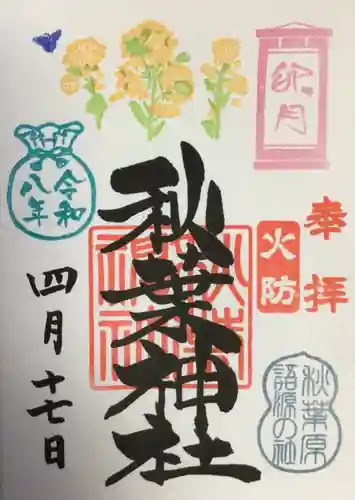 卯月
奉拝
火防
秋葉原
語源の社
秋葉神社
秋葉
神社
令和
八年
四月十七日